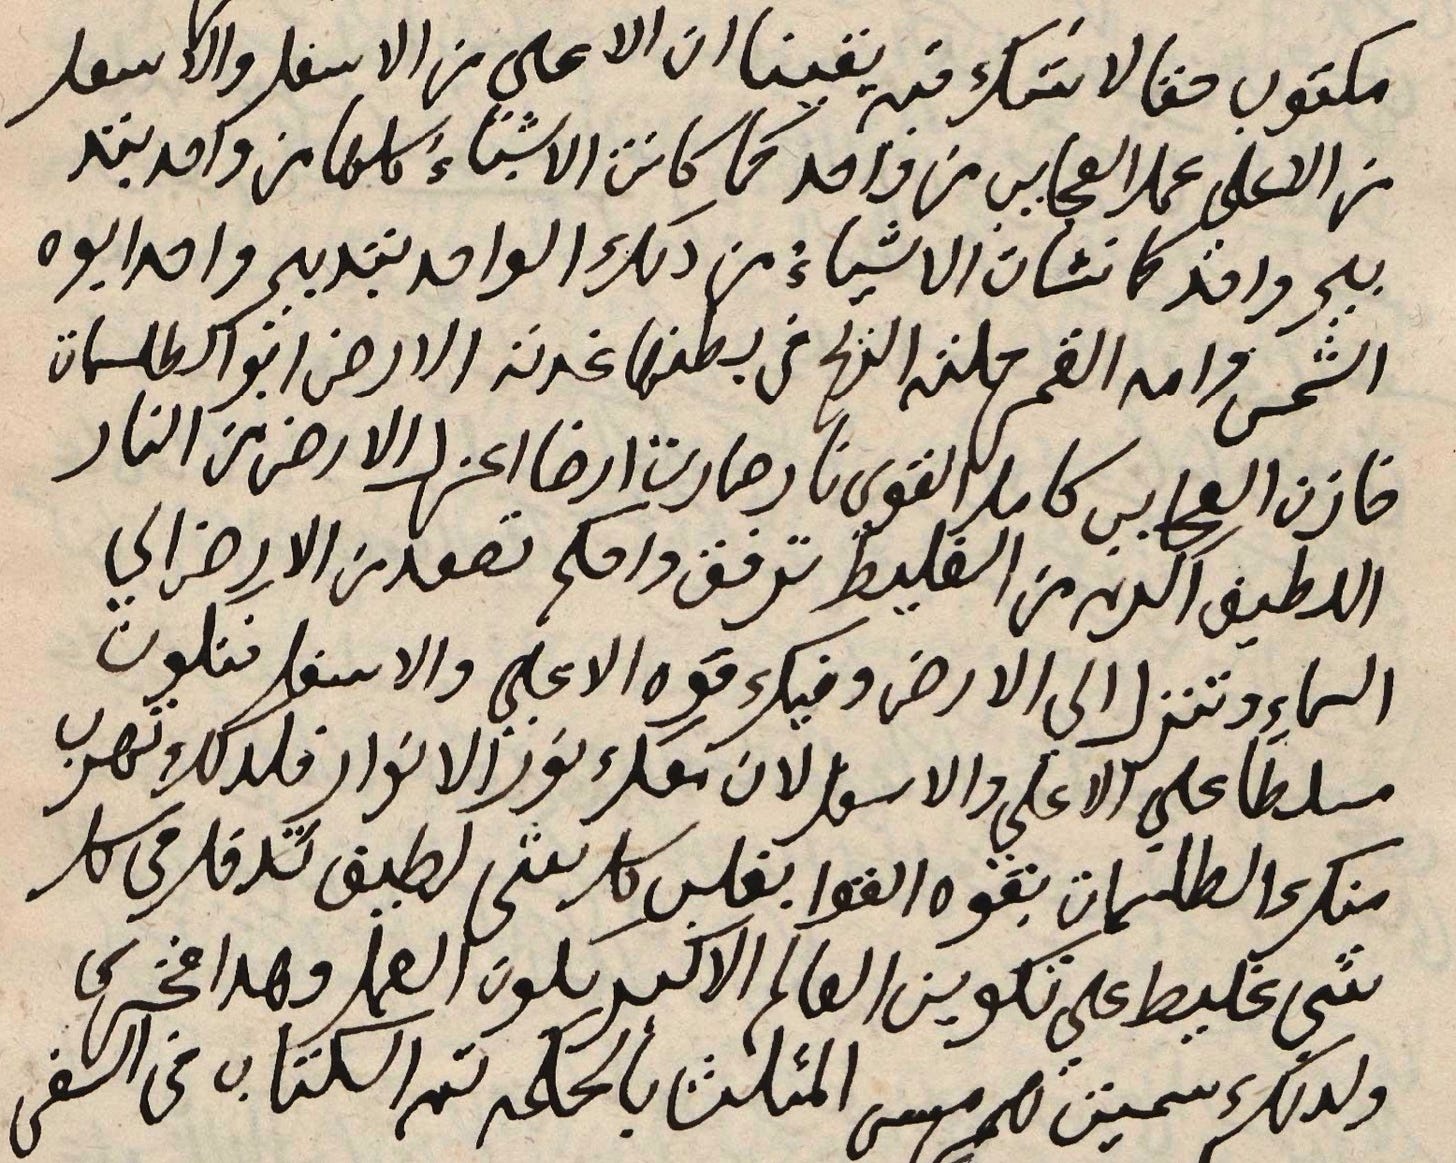 مكتوب حقا لا شك فيه يقينا ان الاعلي من الاسفل والاسفل
من الاعلي عمل العجايب من واحد كما كانت الاشياء كلها من واحد بتد
بير واحد كما نشات الاشياء من دلك الواحد بتدبير واحد ابوه
الشمس وامه القمر حملته الريح في بطنها غدته الارض ابو الطلسمات
خازن العجايب كامل القوي نار صارت ارضا اعزل الارض من النار
اللطيف اكرم من الغليظ ترفق واحكم تصعد من الارض الي
السماء وتنزل الي الارض وفيك قوه الاعلي والاسفل فتكون
مسلطا علي الاعلي والاسفل لان معك نور الانوار فلدلك تهرب
منك الطلسمات بقوه القوا يغلب كل شي لطيف تدخل في كل
شي غليظ علي تكوين العالم الاكبر يكون العمل وهدا فخري
ولدلك سميت هرمس المثلث بالحكمه تم الكتاب في السفر